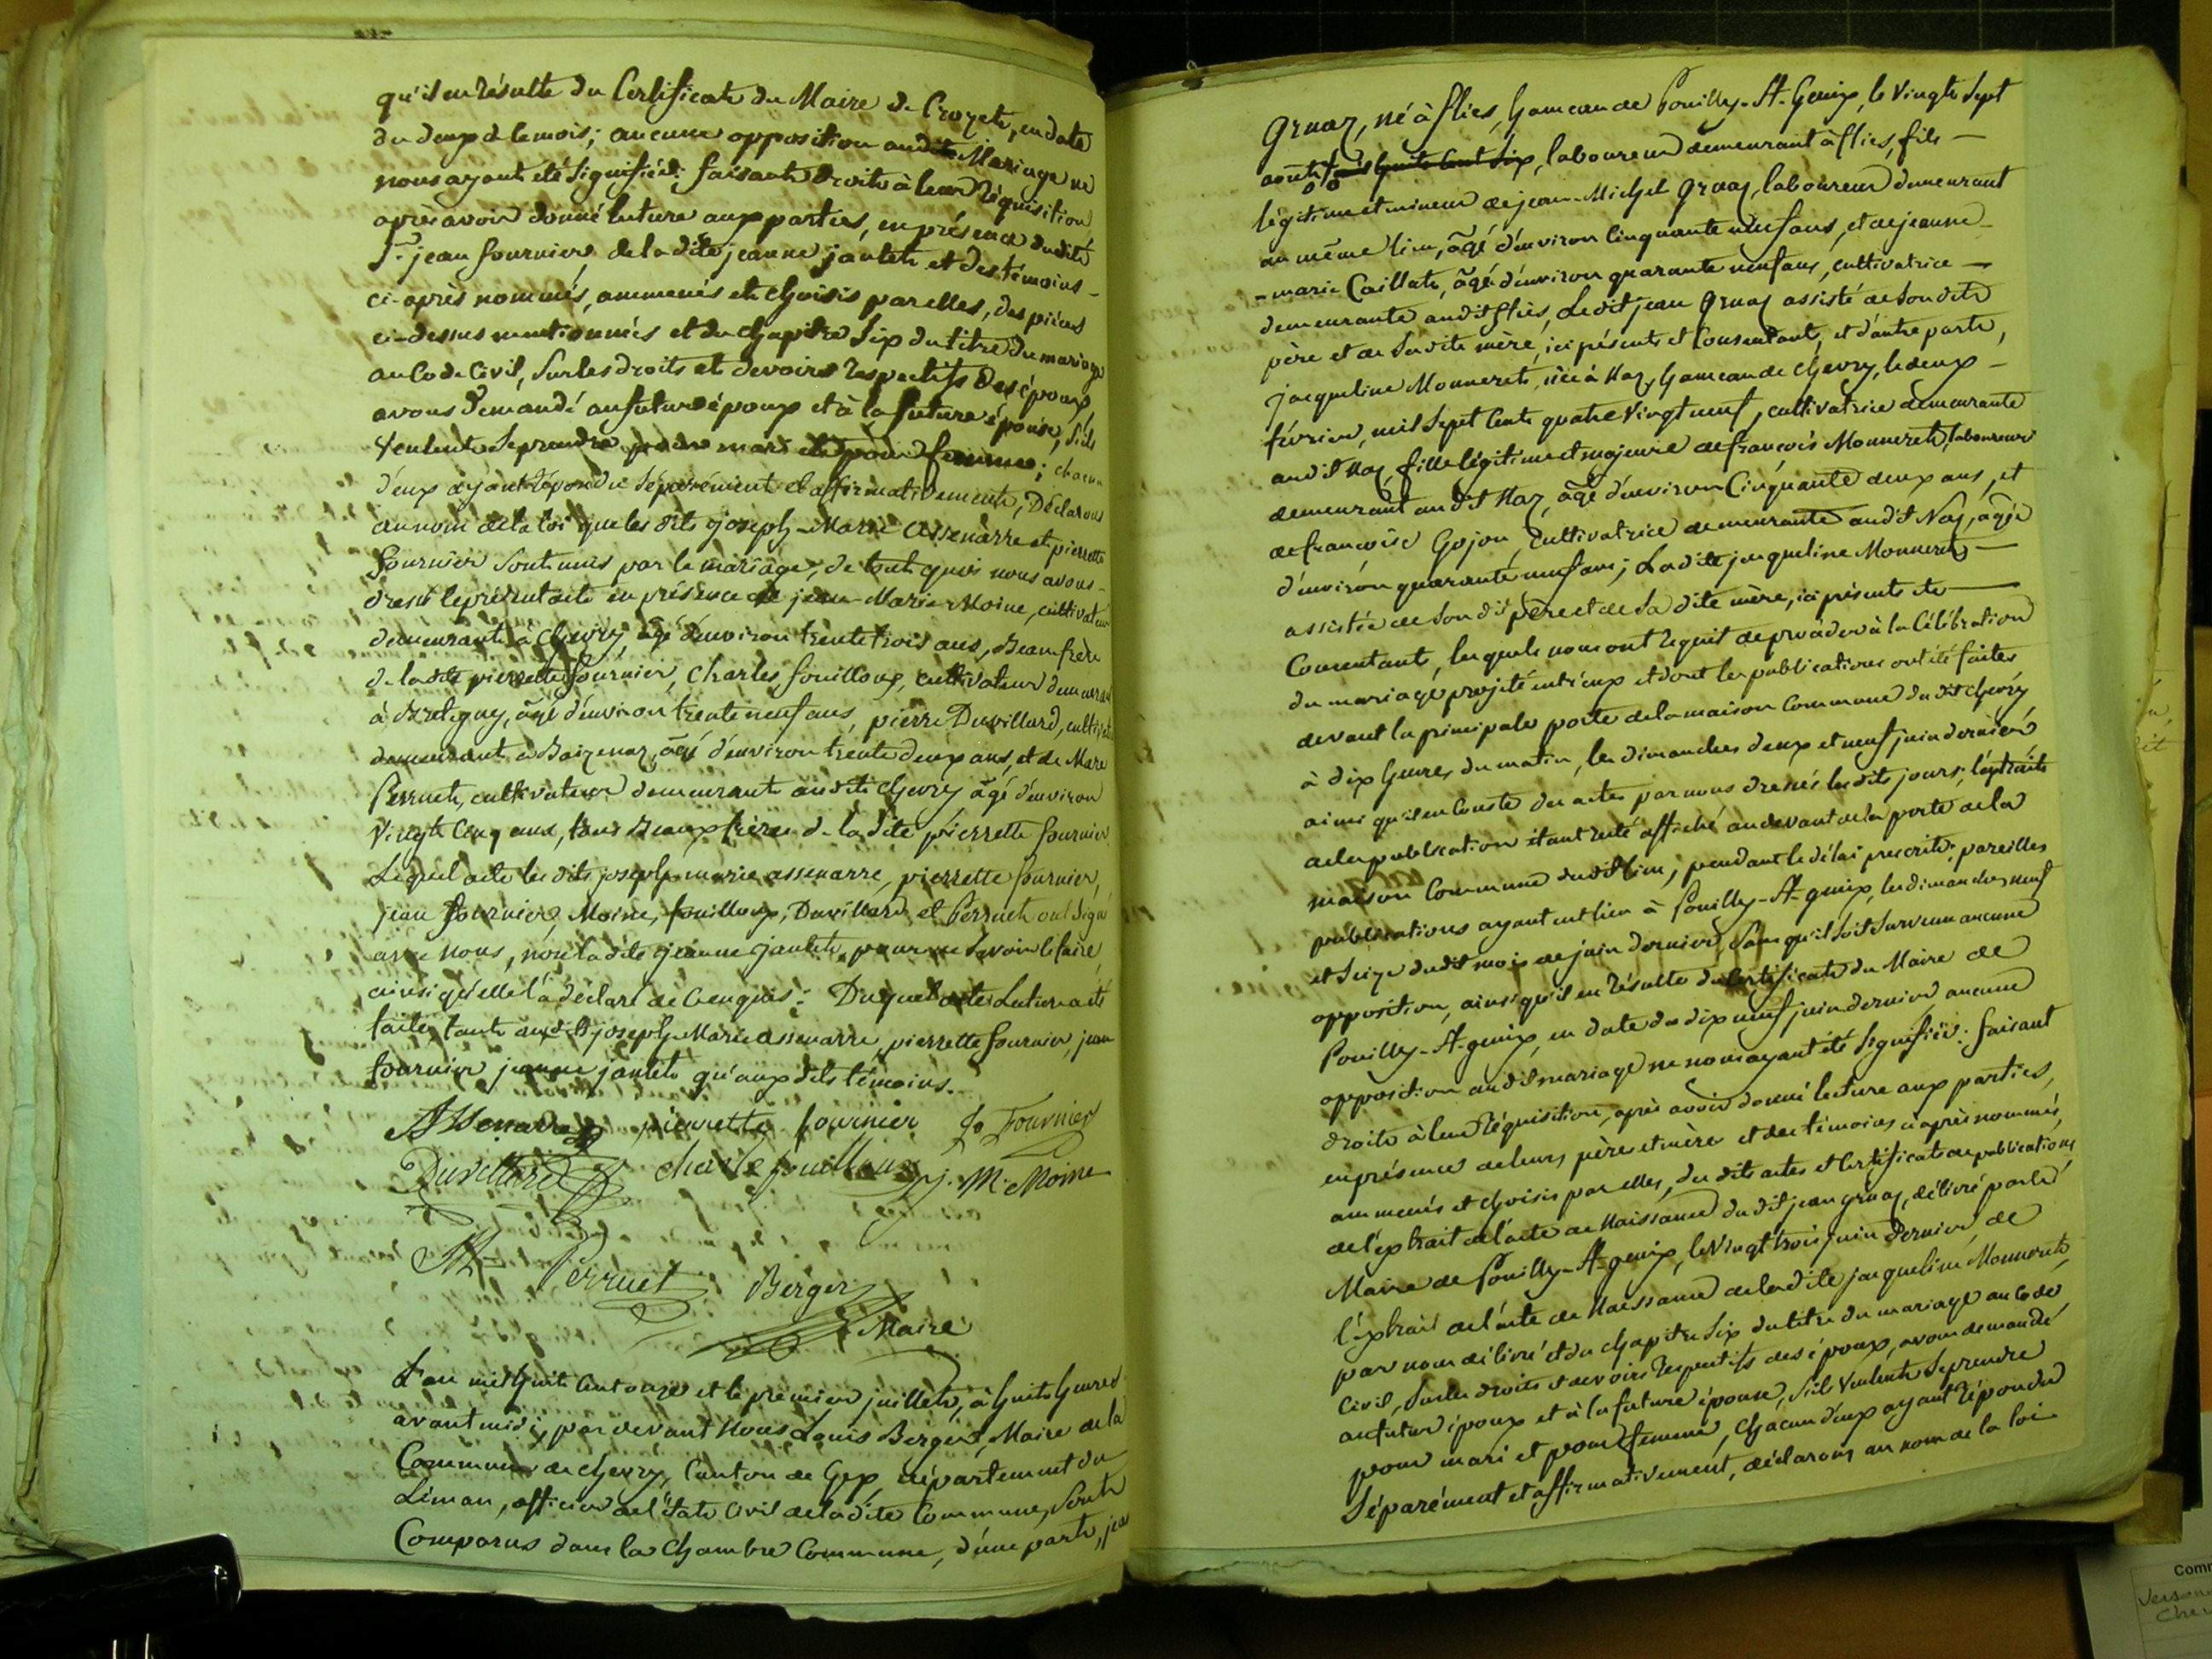 qu'il en résulte du Certificat du Maire de Crozet, en date
du deux de le mois; aucune opposition audit Mariage ne
nous ayant été Signifiée: faisant droit à leur Réquisition
après avoir donné lecture aux parties, en présence dudit
Sr. jean fournier de la dite jeanne jantet et des témoins -
ci-après nommés, ammenés et choisis par elles, des pièces
ci-dessus mentionnées et du chapitre Six du titre du mariage
au Code Civil, Sur les droits et devoirs respectifs des époux
avons demandé au futur époux et à la future épouse, S'ils
Veulent Se prendre pour mari et pour femme; chacun
d'eux ayant répondu Séparément et affirmativement, Déclarons
au nom de la loi que les dits joseph-Marie Assenarre et pierrette
fournier Sont unis par le mariage; de tout quoi nous avons -
dressé le présent acte en présence de jean-Marie Moine, cultivateur
demeurant à Chevry, âgé d'environ trente trois ans, Beaufrère
de ladite pierrette fournier, Charles fouilloux, cultivateur demeurant
à Bretigny, âgé d'environ trente neuf ans, pierre Duvillard, cultivateur
demeurant à Baizenaz, âgé d'environ trente deux ans, et de Marc
Perruet, cultivateur demeurant audit Chevry âgé d'environ
Vingt Cinq ans, tous Beaux frères de la dite pierrette fournier
Lequel acte les dits joseph marie assenarre, pierrette fournier,
jean fournier, Moine, fouilloux, Duvillard et Perruet ont Signé
avec nous, non la dite jeanne jantet, pour ne Savoir le faire,
ainsi qu'elle l'a déclaré de ce enquis: Duquel acte Lecture a été
faite, tant aux dits joseph Marie assenarre, pierrette fournier, jean
fournier jeanne jantet qu'aux dits témoins.
Assenarre pierrette fournier Jn Fournier
Duvillard charle fouilloux J. M. Moine
Mc Perruet Berger
Maire
L'an mil huit Cent onze et le premier juillet, à huit heures
avant midi, par devant Nous Louis Berger, Maire de la
Commune de Chevry, Canton de Gex, département du
Léman, officier de l'état Civil de la dite Commune, Sont
Comparus dans la Chambre Commune, d'une part, jean
Gruaz, né à flies, hameau de Pouilly-St-Genix, le Vingt Sept
août huit Cent Six, laboureur demeurant à flies, fils -
légitime et mineur de jean-Michel Gruaz, laboureur demeurant
au même lieu, âgé d'environ Cinquante neuf ans, et de jeanne -
- marie Caillat, âgé d'environ quarante neuf ans, cultivatrice -
demeurante audit flies, Ledit jean Gruaz assisté de Son dit
père et de Sadite mère, ici présents et Consentant, et d'autre parte,
jacqueline Monneret, née à Naz, hameau de Chevry, le deux -
février, mil Sept Cent quatre Vingt neuf, cultivatrice demeurante
audit Naz, fille légitime et majeure de françois Monneret, laboureur
demeurant audit Naz, âgé d'environ Cinquante deux ans, et
de françoise Gojon, Cultivatrice demeurante audit Naz, âgée
d'environ quarante neuf ans; Ladite jacqueline Monneret -
assistée de Son dit père et de Sa dite mère, ici présents et -
Consentants, lesquels nous ont requit de procéder à la Célébration
du mariage projeté entr'eux et dont les publications ont été faites
devant la principale porte de la maison Commune du dit Chevry
à dix heures du matin, les dimanches deux et neuf juin dernier
ainsi qu'il en Conste des actes par nous dressés les dits jours; l'extrait
de la publication étant resté affiché au devant de la porte de la
maison Commune dudit lieu, pendant le délai prescrit; pareilles
publications ayant eut lieu à Pouilly-St-genix, les dimanches neuf
et Seize dudit mois de juin dernier, Sans qu'il Soit Survenu aucune
opposition, ainsi qu'il en résulte du Certificat du Maire de
Pouilly-St-genix, en date du dix neuf juin dernier, aucune
opposition audit mariage ne nous ayant été Signifiée: faisant
droit à leur Réquisition, après avoir donné lecture aux parties,
en présence de leurs père et mère et des témoins ci après nommés,
ammenés et choisis par elles, des dits actes et Certificat de publications
de l'extrait de l'acte de Naissance du dit jean gruaz, délivré par le
Maire de Pouilly-St-genix, le Vingt trois juin dernier, de
l'extrait de l'acte de Naissance de la dite jacqueline Monneret,
par nous délivré et du chapitre Six du titre du mariage au Code
Civil, Sur les droits et devoirs respectifs des époux, avons demandé
au futur époux et à la future épouse, S'ils Veulent Se prendre
pour mari et pour femme, chacun d'eux ayant répondu
Séparément et affirmativement, déclarons au nom de la loi
Comm
Verson
Chev